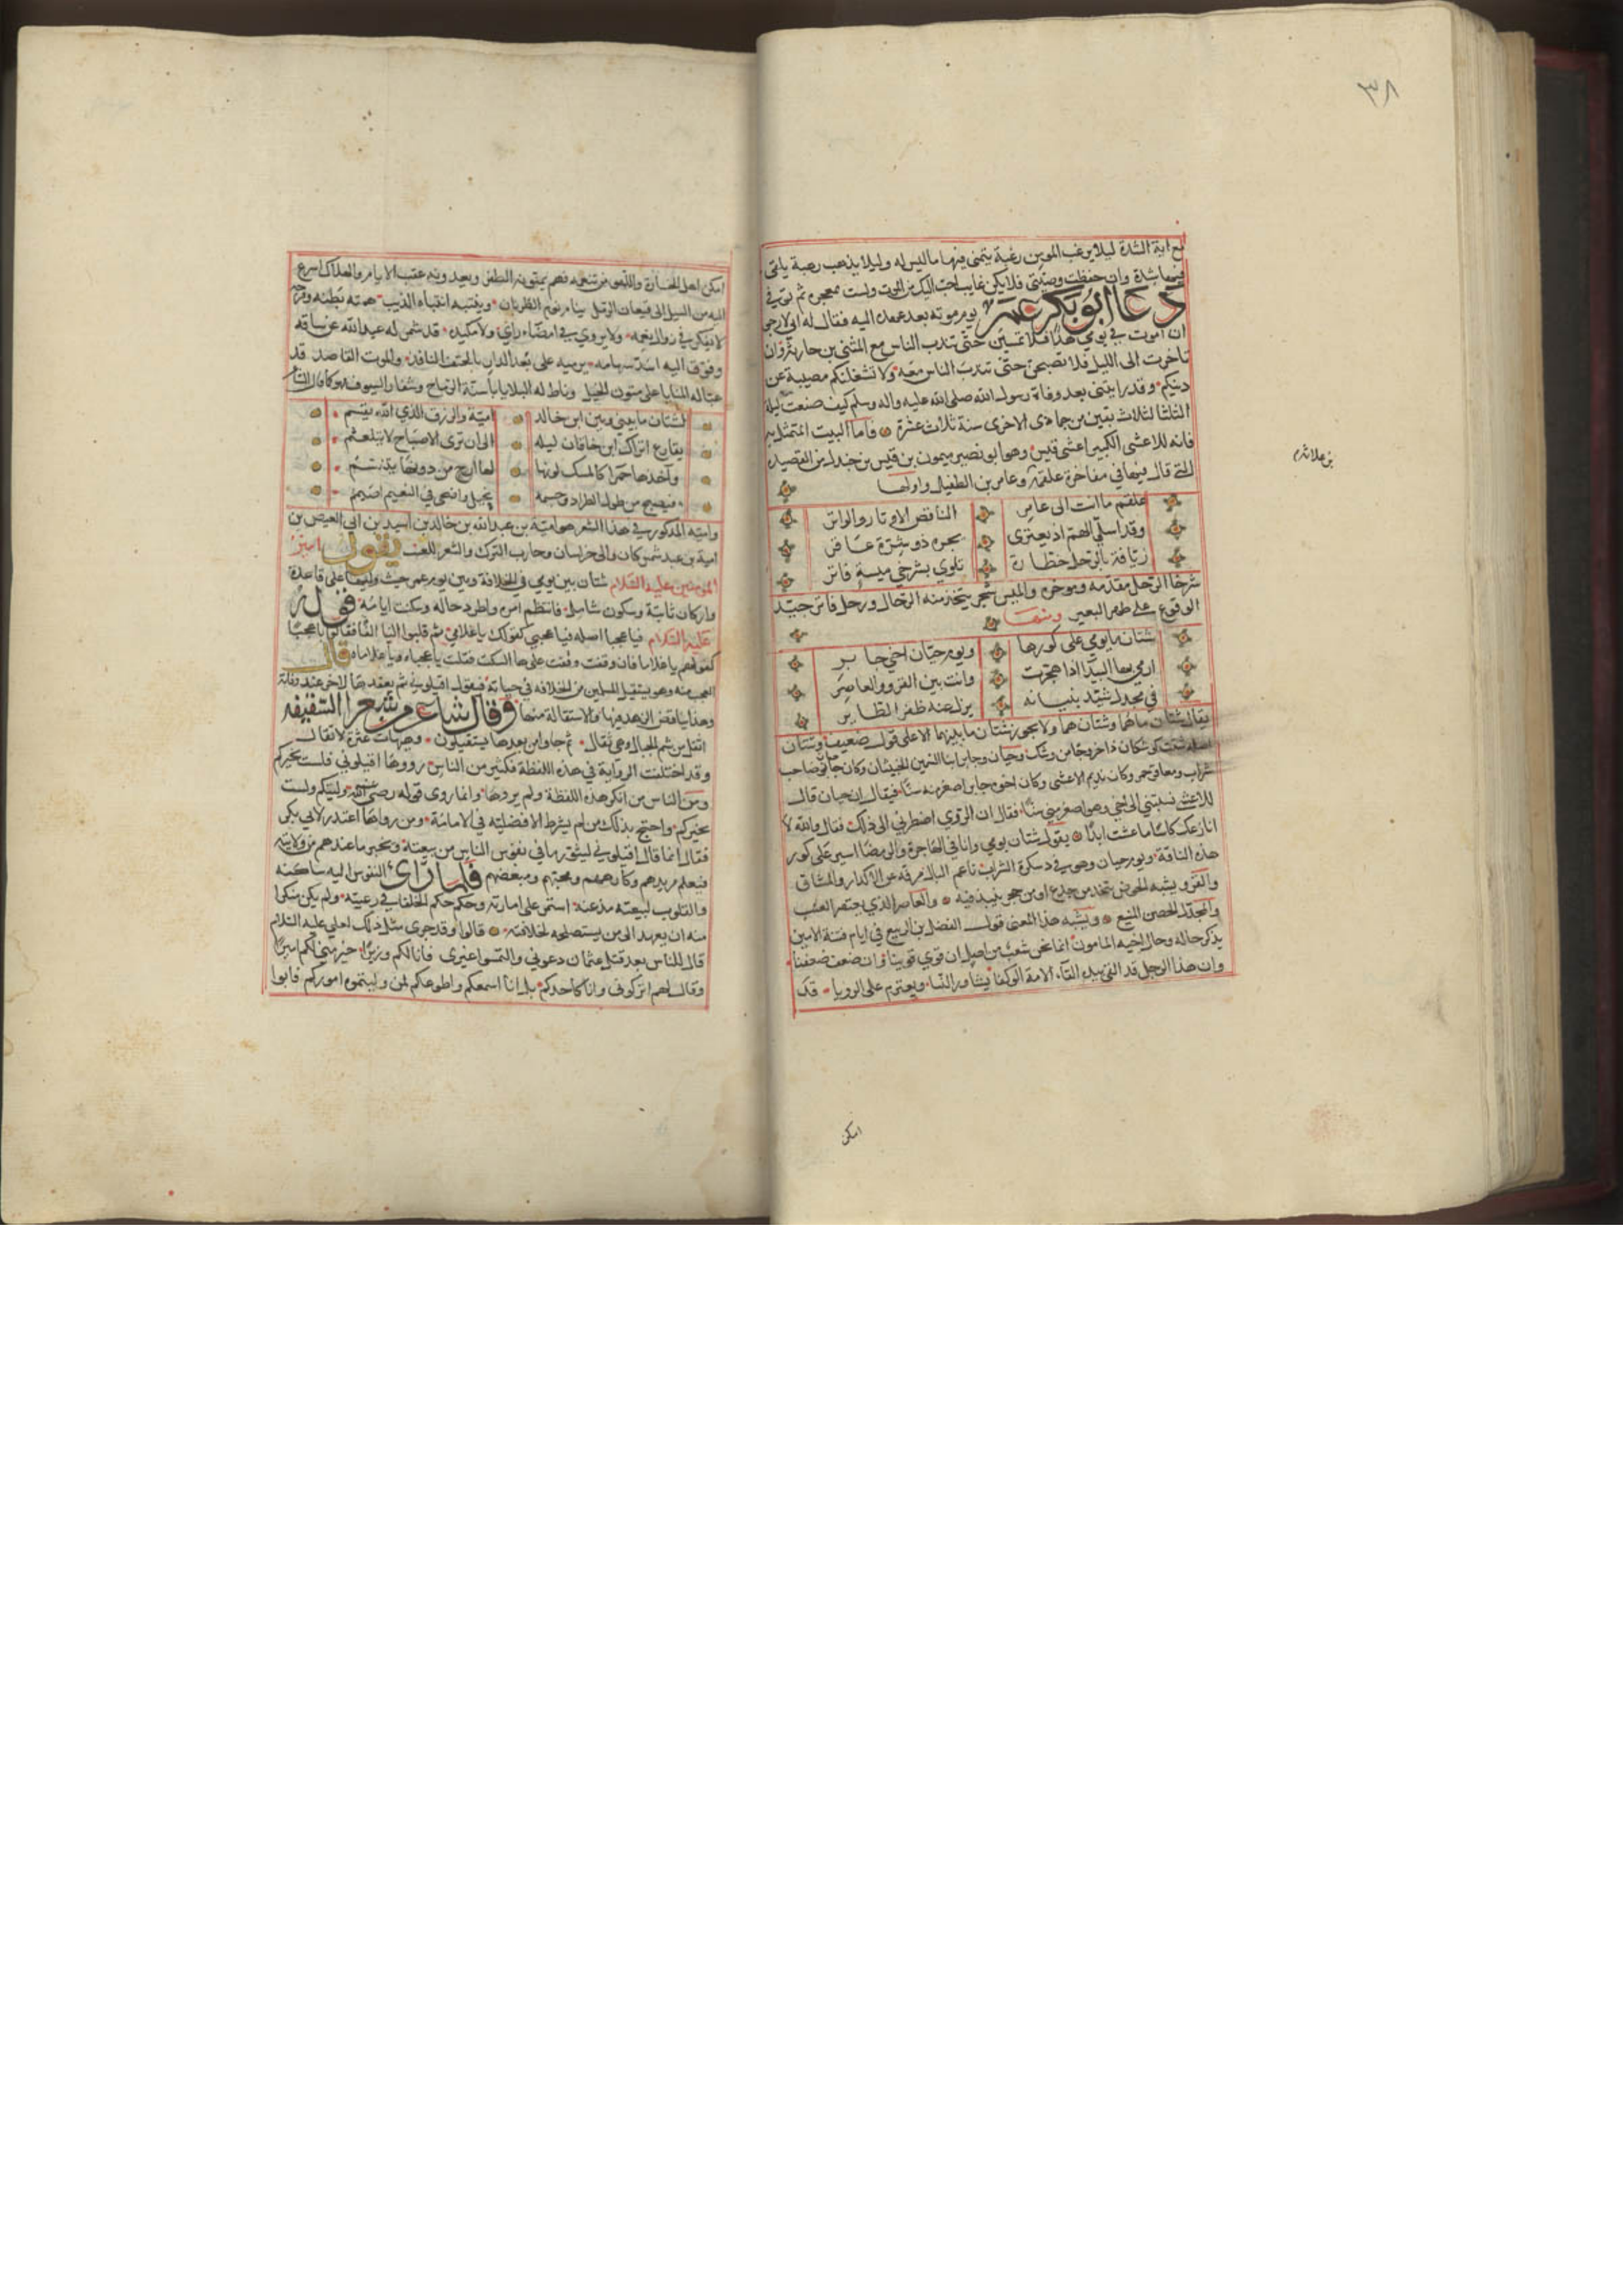 ٣٨
مع اية الشدة ليلا يرغب المومن رغبة يتمنى فيها ما ليس له وليلا يذهب رهبة يلقى
فيها بيده وان حفظت وصيتي فلا يكن غايب احب اليك من الموت ولست بمعجزه ثم توفي
دعا ابو بكر عمر يوم موته بعد عهده اليه فقال له اني لارجو
ان اموت في يومي هذا فلا تمسين حتى تندب الناس مع المثنى بن حارثة وان
تاخرت الى الليل فلا تصبحن حتى تندب الناس معه ولا تشغلنكم مصيبة عن
دينكم وقد رايتني بعد وفاة رسول الله صلى الله عليه واله وسلم كيف صنعت ليلة
الثلثا لثلاث بقين من جمادى الاخرى سنة ثلاث عشرة فاما البيت المتمثل به
فانه للاعشى الكبير اعشى قيس وهو ابو نصير ميمون بن قيس بن جندل من القصيدة
التي قال فيها في مفاخرة علقمة وعامر بن الطفيل واولها
بن علاثة
علقم ما انت الى عامر الناقض الاوتار والواتر
وقد اسلي الهم اذ يعترى بجسرة ذو شرة عاقر
زيافة بالرحل خطارة تلوي بشرخي ميسة قاتر
شرخا الرحل مقدمه وموخره والميس شجر يتخذ منه الرحال ورحل قاتر جيد
الوقوع على ظهر البعير ومنها
شتان ما يومي على كورها ويوم حيان اخي جابر
ارمي بها البيدا اذا هجرت وانت بين القرو والعاصر
في مجدل شيد بنيانه يزل عنه ظفر الطاير
يقال شتان ما هما وشتان هما ولا يجوز شتان ما بينهما الا على قول ضعيف وشتان
اصله شتت كوشكان ذا خروجا من وشك وحيان وجابر ابنا السمين الحنفيان وكان حيان صاحب
شراب ومعاقرة خمر وكان نديم الاعشى وكان اخوه جابر اصغر منه سنا فيقال ان حيان قال
للاعشى نسبتني الى اخي وهو اصغر مني سنا فقال ان الروي اضطرني الى ذلك فقال والله لا
انازعك كاسا ما عشت ابدا يقول شتان يومي وانا في الهاجرة والرمضا اسير على كور
هذه الناقة ويوم حيان وهو في سكرة الشراب ناعم البال مرفه عن الاكدار والمشاق
والقرو يشبه الحوض يتخذ من جذع او من حجر ينبذ فيه والعاصر الذي يعتصر العنب
والمجدل الحصن المنيع ويشبه هذا المعنى قول الفضل بن الربيع في ايام فتنة الامين
يذكر حاله وحال اخيه المامون انما نحن شعب من اصل ان قوي قوينا وان ضعف ضعفنا
وان هذا الرجل قد القى بيده القاء الامة الوكعا يشاور النسا ويعتزم على الرويا قد
امكن
امكن اهل الخسارة واللهو من سمعه فهم يمنونه الظفر ويعدونه عقب الايام والهلاك اسرع
اليه من السيل الى قيعان الرمل ينام نوم الظربان وينتبه انتباه الذيب همه بطنه وفرجه
لا يفكر في زوال نعمه ولا يروي في امضاء راي ولا مكيدة قد شمر له عبد الله عن ساقه
وفوق اليه اسد سهامه يرميه على بعد الدار بالحتف النافذ والموت القاصد قد
عبا له المنايا على متون الخيل وناط له البلايا باسنة الرماح وشفار السيوف فهو كما قال الشاعر
لشتان ما بيني وبين ابن خالد امية والرزق الذي الله يقسم
يقارع اتراك ابن خاقان ليله الى ان ترى الاصباح لا يتلعثم
وآخذها حمرا كالمسك لونها لها ارج من دونها يتنسم
فيصبح من طول الطراد وجسمه نحيل واضحى في النعيم اصمم
وامية المذكور في هذا الشعر هو امية بن عبد الله بن خالد بن اسيد بن ابى العيص بن
امية بن عبد شمس كان والي خراسان وحارب الترك والشعر للبعيث يقول امير
المومنين عليه السلام شتان بين يومي في الخلافة وبين يوم عمر حيث وليها على قاعدة
واركان ثابتة وسكون شامل فانتظم امره واطرد حاله وسكنت ايامه قوله
عليه السلام فيا عجبا اصله فيا عجبي كقولك يا غلامي ثم قلبوا اليا الفا فقالوا يا عجبا
كقولهم يا غلاما فان وقفت وقفت على ها السكت فقلت يا عجباه ويا غلاماه قال
العجب منه وهو يستقيل المسلمين من الخلافة في حياته فيقول اقيلوني ثم يعقدها لاخر عند وفاته
وهذا يناقض الزهد فيها والاستقالة منها وقال شاعر من شعرا الشيعة
وقد اختلفت الرواية في هذه اللفظة فكثير من الناس رووها اقيلوني فلست بخيركم
ومن الناس من انكر هذه اللفظة ولم يروها وانما روى قوله رضي الله عنه وليتكم ولست
بخيركم واحتج بذلك من لم يشترط الافضلية في الامامة ومن رواها اعتذر لابي بكر
فقال انما قال اقيلوني ليثور ما في نفوس الناس من بيعته ويخبر ما عندهم من ولايته
فيعلم مريدهم وكارههم ومحبهم ومبغضهم فلما راى النفوس اليه ساكنة
والقلوب لبيعته مذعنة استمر على امارته وحكم حكم الخلفا في رعيته ولم يكن منكرا
منه ان يعهد الى من يستصلحه لخلافته قالوا وقد جرى مثل ذلك لعلي عليه السلام
قال للناس بعد قتل عثمان دعوني والتمسوا غيرى فانا لكم وزيرا خير مني لكم اميرا
وقال لهم اتركوني وانا كاحدكم بل انا اسمعكم واطوعكم لمن وليتموه اموركم فابوا